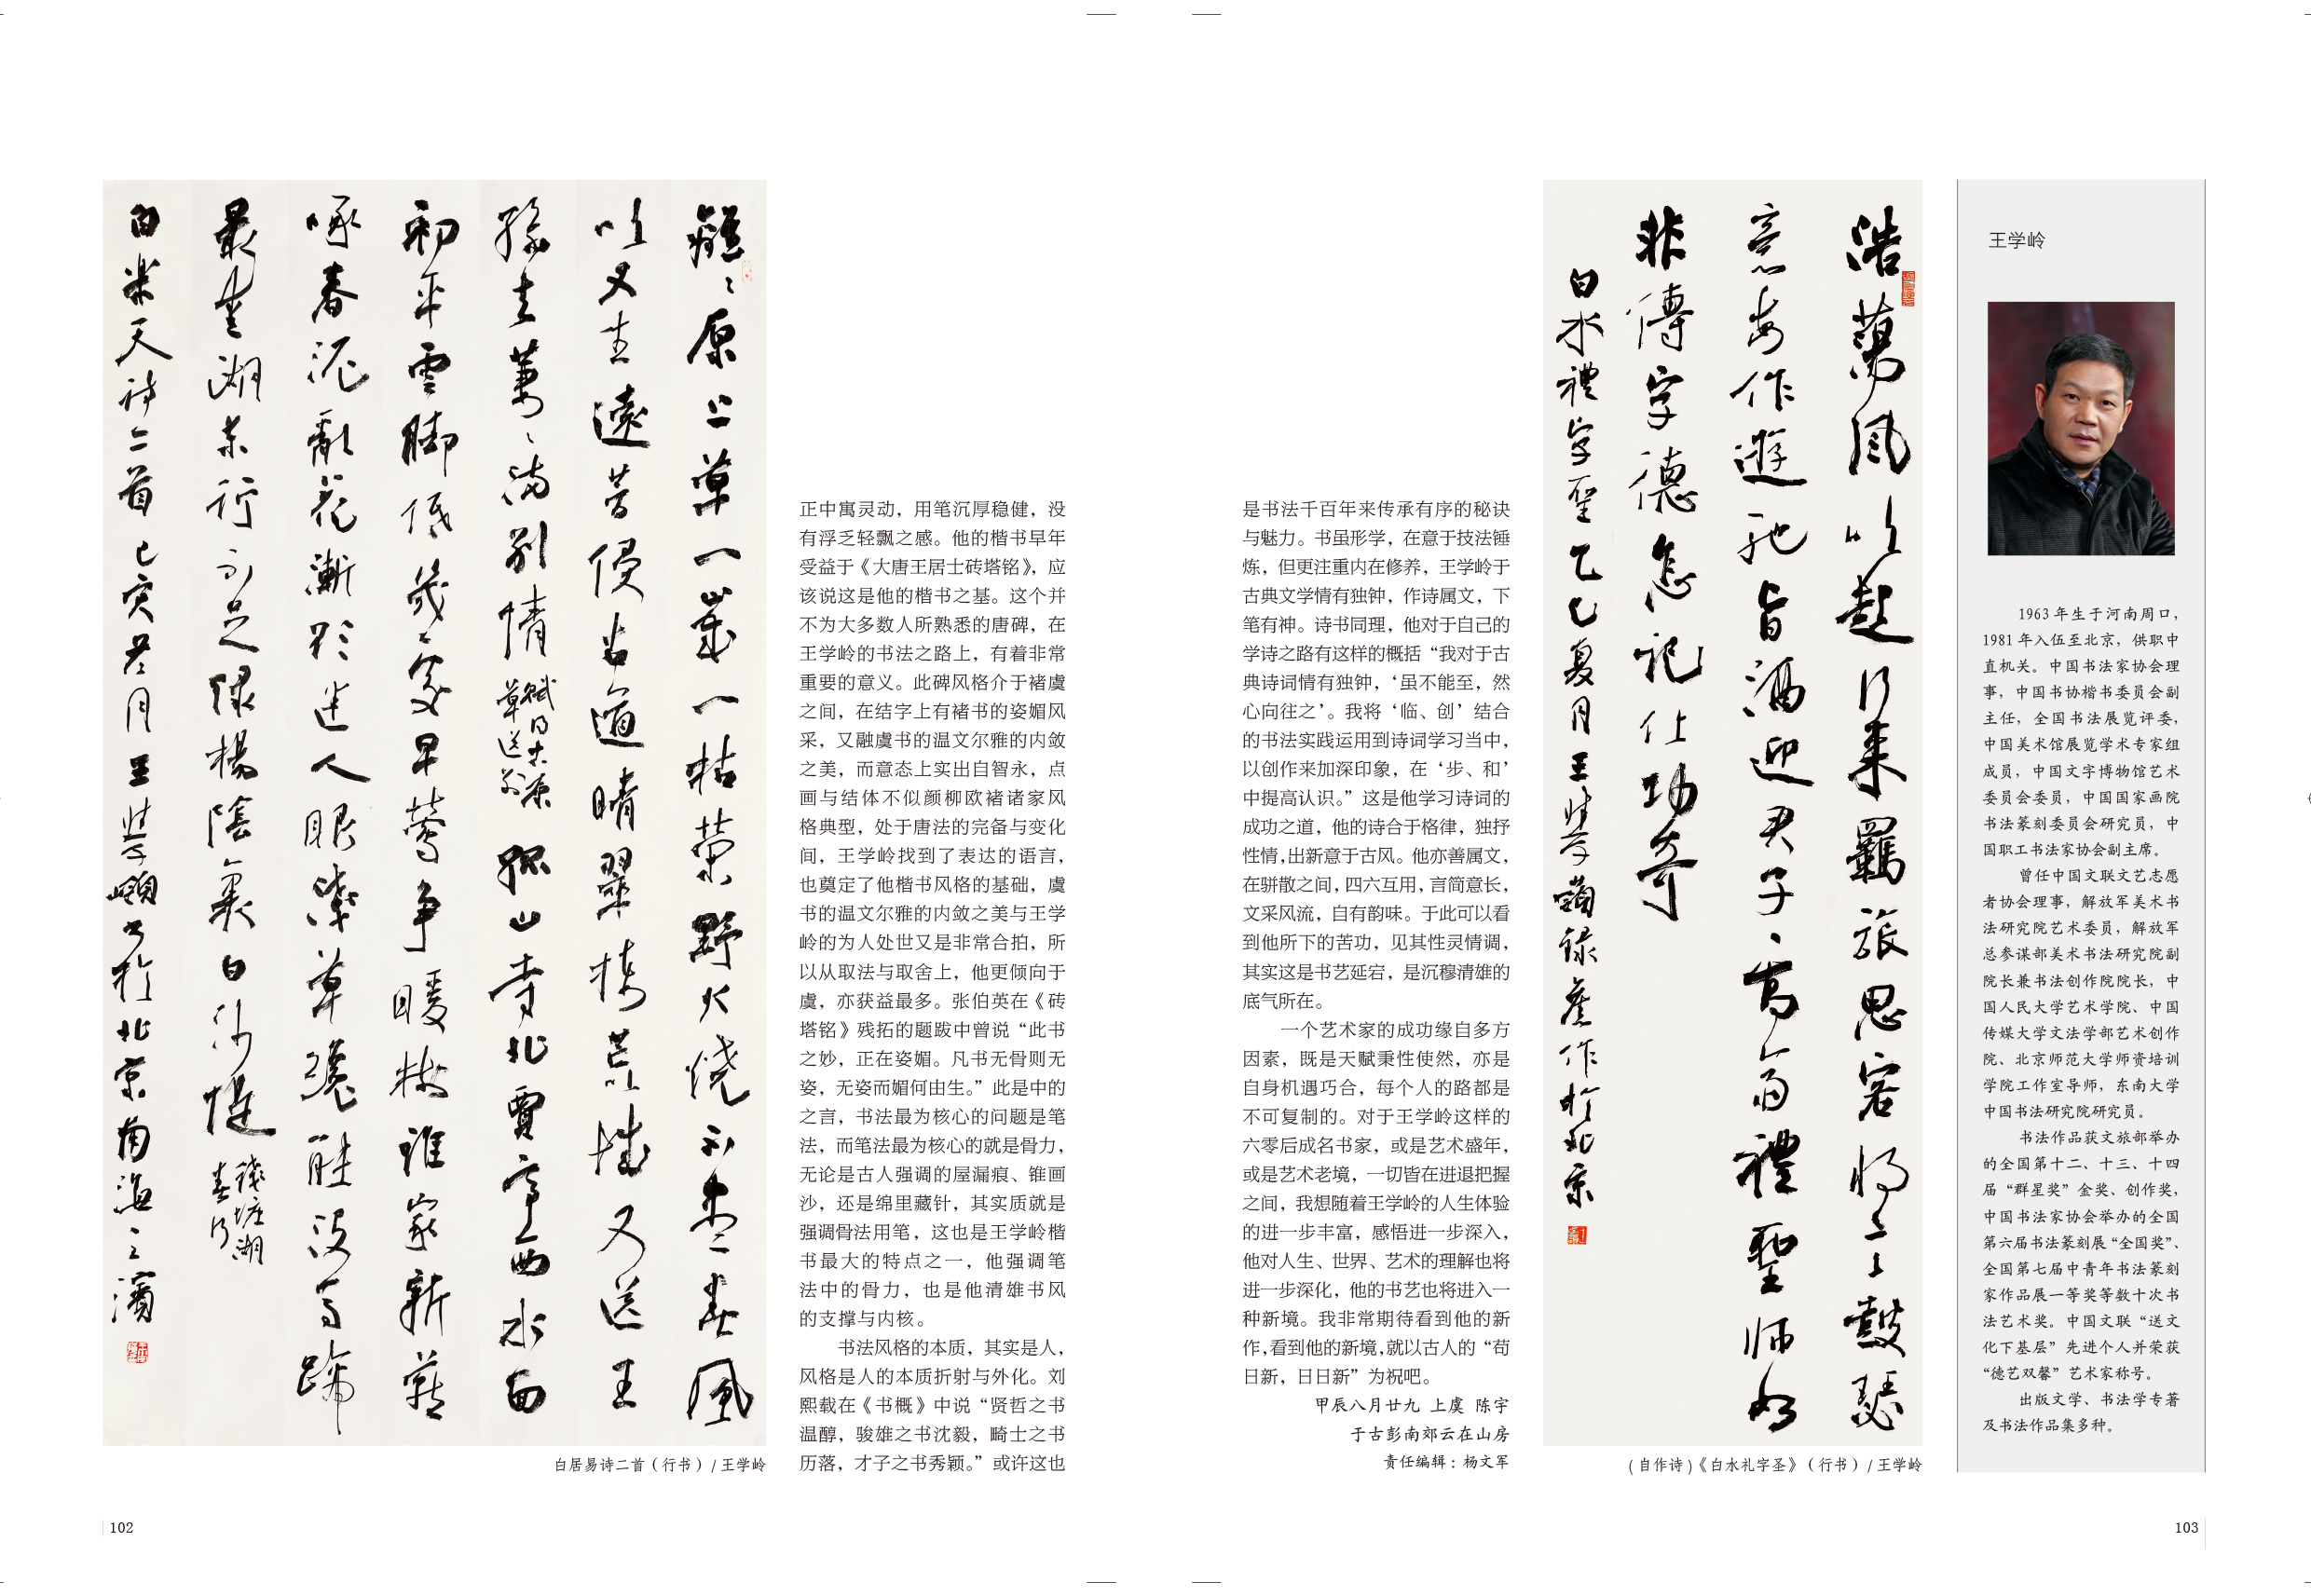 離〻原上草一歲一枯榮野火燒不盡春風
吹又生遠芳侵古道晴翠接荒城又送王
孫去萋〻滿別情
賦得古原
草送別
孤山寺北賈亭西水面
初平雲腳低幾處早鶯爭暖樹誰家新燕
啄春泥亂花漸欲迷人眼淺草纔能沒馬蹄
最愛湖東行不足綠楊陰裏白沙堤
錢塘湖
春行
白樂天詩二首己亥月王學嶺書於北京南海之濱
白居易诗二首（行书）/ 王学岭
正中寓灵动，用笔沉厚稳健，没
有浮乏轻飘之感。他的楷书早年
受益于《大唐王居士砖塔铭》，应
该说这是他的楷书之基。这个并
不为大多数人所熟悉的唐碑，在
王学岭的书法之路上，有着非常
重要的意义。此碑风格介于褚虞
之间，在结字上有褚书的姿媚风
采，又融虞书的温文尔雅的内敛
之美，而意态上实出自智永，点
画与结体不似颜柳欧褚诸家风
格典型，处于唐法的完备与变化
间，王学岭找到了表达的语言，
也奠定了他楷书风格的基础，虞
书的温文尔雅的内敛之美与王学
岭的为人处世又是非常合拍，所
以从取法与取舍上，他更倾向于
虞，亦获益最多。张伯英在《砖
塔铭》残拓的题跋中曾说“此书
之妙，正在姿媚。凡书无骨则无
姿，无姿而媚何由生。”此是中的
之言，书法最为核心的问题是笔
法，而笔法最为核心的就是骨力，
无论是古人强调的屋漏痕、锥画
沙，还是绵里藏针，其实质就是
强调骨法用笔，这也是王学岭楷
书最大的特点之一，他强调笔
法中的骨力，也是他清雄书风
的支撑与内核。
书法风格的本质，其实是人，
风格是人的本质折射与外化。刘
熙载在《书概》中说“贤哲之书
温醇，骏雄之书沈毅，畸士之书
历落，才子之书秀颖。”或许这也
102
是书法千百年来传承有序的秘诀
与魅力。书虽形学，在意于技法锤
炼，但更注重内在修养，王学岭于
古典文学情有独钟，作诗属文，下
笔有神。诗书同理，他对于自己的
学诗之路有这样的概括“我对于古
典诗词情有独钟，‘虽不能至，然
心向往之’。我将‘临、创’结合
的书法实践运用到诗词学习当中，
以创作来加深印象，在‘步、和’
中提高认识。”这是他学习诗词的
成功之道，他的诗合于格律，独抒
性情，出新意于古风。他亦善属文，
在骈散之间，四六互用，言简意长，
文采风流，自有韵味。于此可以看
到他所下的苦功，见其性灵情调，
其实这是书艺延宕，是沉穆清雄的
底气所在。
一个艺术家的成功缘自多方
因素，既是天赋秉性使然，亦是
自身机遇巧合，每个人的路都是
不可复制的。对于王学岭这样的
六零后成名书家，或是艺术盛年，
或是艺术老境，一切皆在进退把握
之间，我想随着王学岭的人生体验
的进一步丰富，感悟进一步深入，
他对人生、世界、艺术的理解也将
进一步深化，他的书艺也将进入一
种新境。我非常期待看到他的新
作，看到他的新境，就以古人的“苟
日新，日日新”为祝吧。
甲辰八月廿九 上虞 陈宇
于古彭南郊云在山房
责任编辑：杨文军
浩蕩風吹行來羈旅思鼓瑟
作遊旨酒迎君子禮聖師
非傳字德怎記功奇
白水禮字聖乙巳夏月王學嶺錄舊作於北京
（自作诗）《白水礼字圣》（行书）/ 王学岭
王学岭
1963年生于河南周口，
1981年入伍至北京，供职中
直机关。中国书法家协会理
事，中国书协楷书委员会副
主任，全国书法展览评委，
中国美术馆展览学术专家组
成员，中国文字博物馆艺术
委员会委员，中国国家画院
书法篆刻委员会研究员，中
国职工书法家协会副主席。
曾任中国文联文艺志愿
者协会理事，解放军美术书
法研究院艺术委员，解放军
总参谋部美术书法研究院副
院长兼书法创作院院长，中
国人民大学艺术学院、中国
传媒大学文法学部艺术创作
院、北京师范大学师资培训
学院工作室导师，东南大学
中国书法研究院研究员。
书法作品获文旅部举办
的全国第十二、十三、十四
届“群星奖”金奖、创作奖，
中国书法家协会举办的全国
第六届书法篆刻展“全国奖”、
全国第七届中青年书法篆刻
家作品展一等奖等数十次书
法艺术奖。中国文联“送文
化下基层”先进个人并荣获
“德艺双馨”艺术家称号。
出版文学、书法学专著
及书法作品集多种。
103